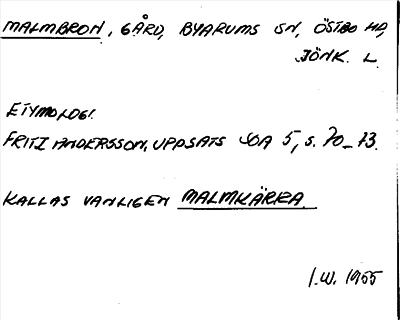 MALMBRON, GÅRD, BYARUMS SN, ÖSTBO HD,
JÖNK. L.
ETYMOLOGI.
FRITZ ANDERSSON, UPPSATS SOA 5, S. 70-73.
KALLAS VANLIGEN MALMKÄRRA.
I.W. 1955